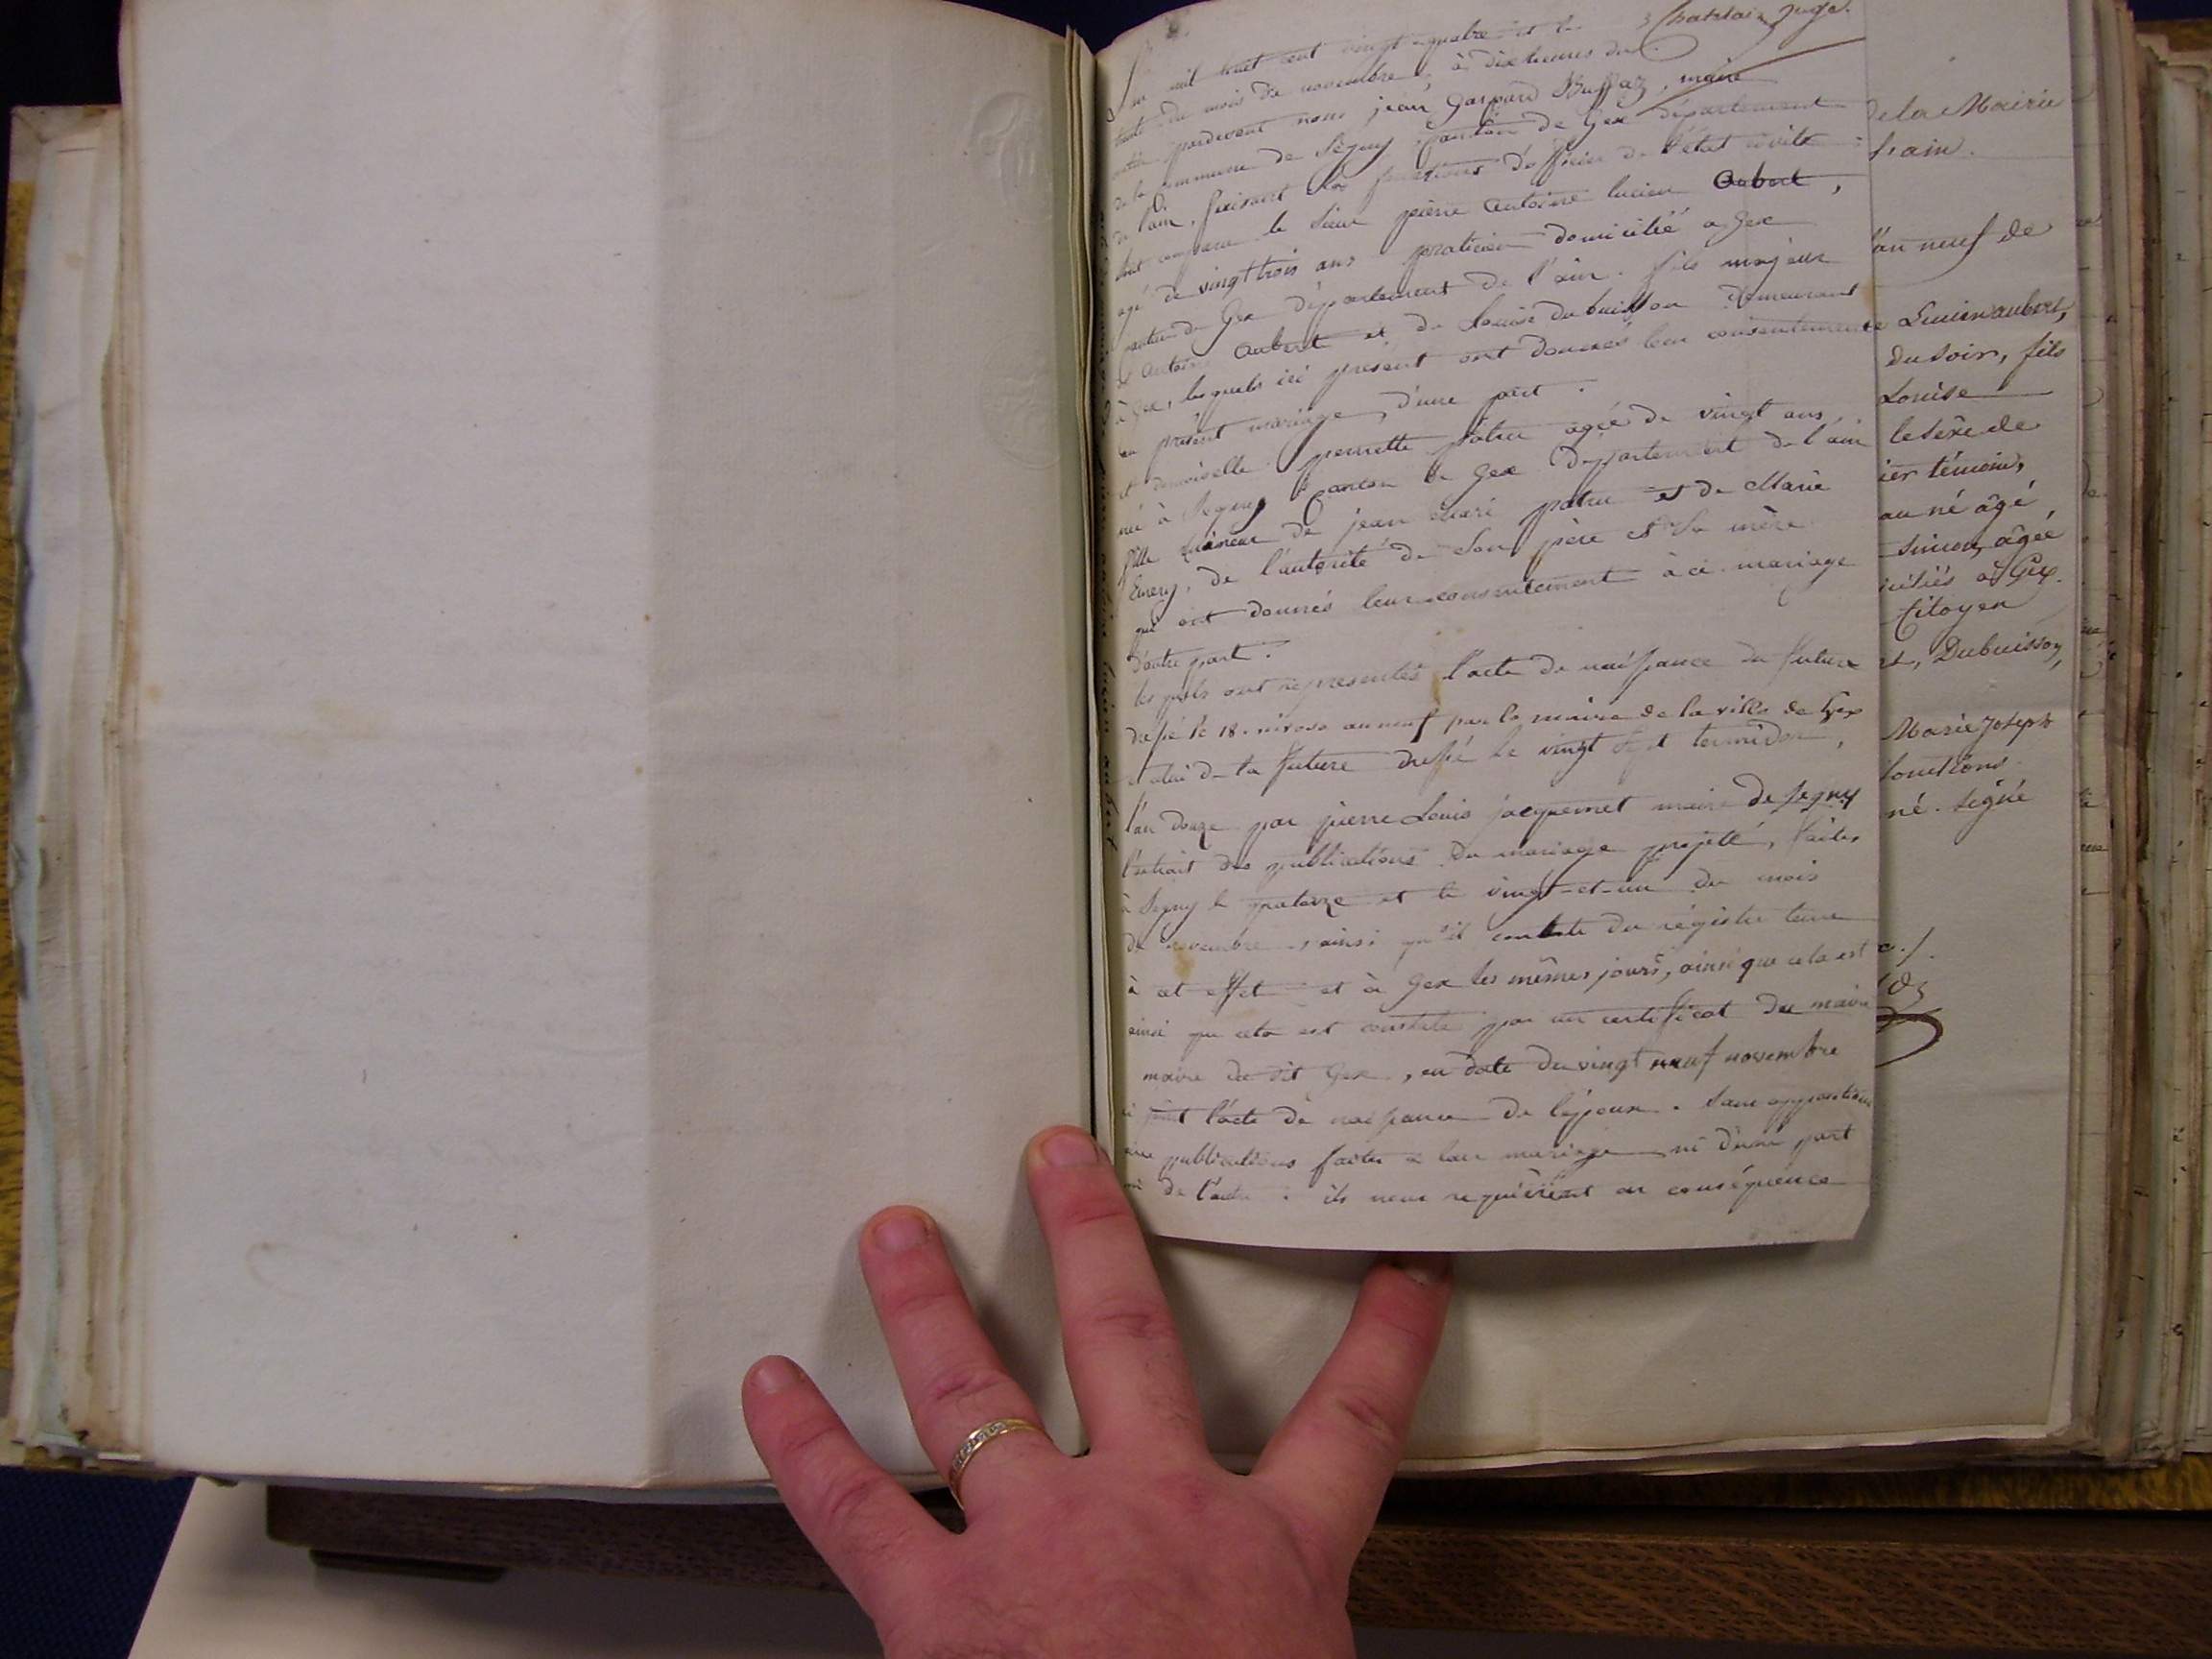 mil huit cent vingt-quatre et le
Chatelain Juge.
du mois de novembre, à dix heures du
pardevant nous jean Gaspard Buffaz, maire
de la commune de Ségny, canton de Gex département
de l'ain, faisant les fonctions d'officier de l'état civil
comparu le Sieur pierre antoine lucien Aubert,
agé de vingt trois ans praticien domicilié a Gex
Gex département de l'ain. fils majeur
d'antoine Aubert et de Louise dubuisson demeurant
à Gex, lesquels ici présent ont donnés leur consentement
au présent mariage, d'une part.
et demoiselle pernette patru agée de vingt ans,
né à Segny Canton de Gex département de l'ain
fille mineur de jean mari patru et de Marie
Emery, de l'autorité de Son père et Sa mère
qui ont donnés leur consentement à ce mariage
d'autre part.
lesquels ont représentés l'acte de naissance du futur
dressé le 18. nivose an neuf par le maire de la ville de Gex
celui de la future dressé le vingt sept termidor,
l'an douze par pierre Louis jacquemet maire de Segny
l'extrait des publications du mariage projetté, faites
à Segny le quatorze et le vingt-et-un du mois
de novembre, ainsi qu'il conste du régistre tenu
à cet effet et à Gex les mêmes jours, ainsi que cela est
ainsi que cela est constaté par un certificat du maire
maire du dit Gex, en date du vingt neuf novembre
ci joint l'acte de naissance de l'époux. Sans opposition
aux publications faites a leur mariage ni d'une part
ni de l'autre: ils nous requièrent en conséquence
de la Mairie
l'ain.
l'an neuf de
Lucien aubert,
du soir, fils
Louise
le sexe de
ier témoin,
au né âgé
simon, âgée
ciliés à Gex.
Citoyen
et, Dubuisson,
Marie Joseph
fonctions.
né. signé